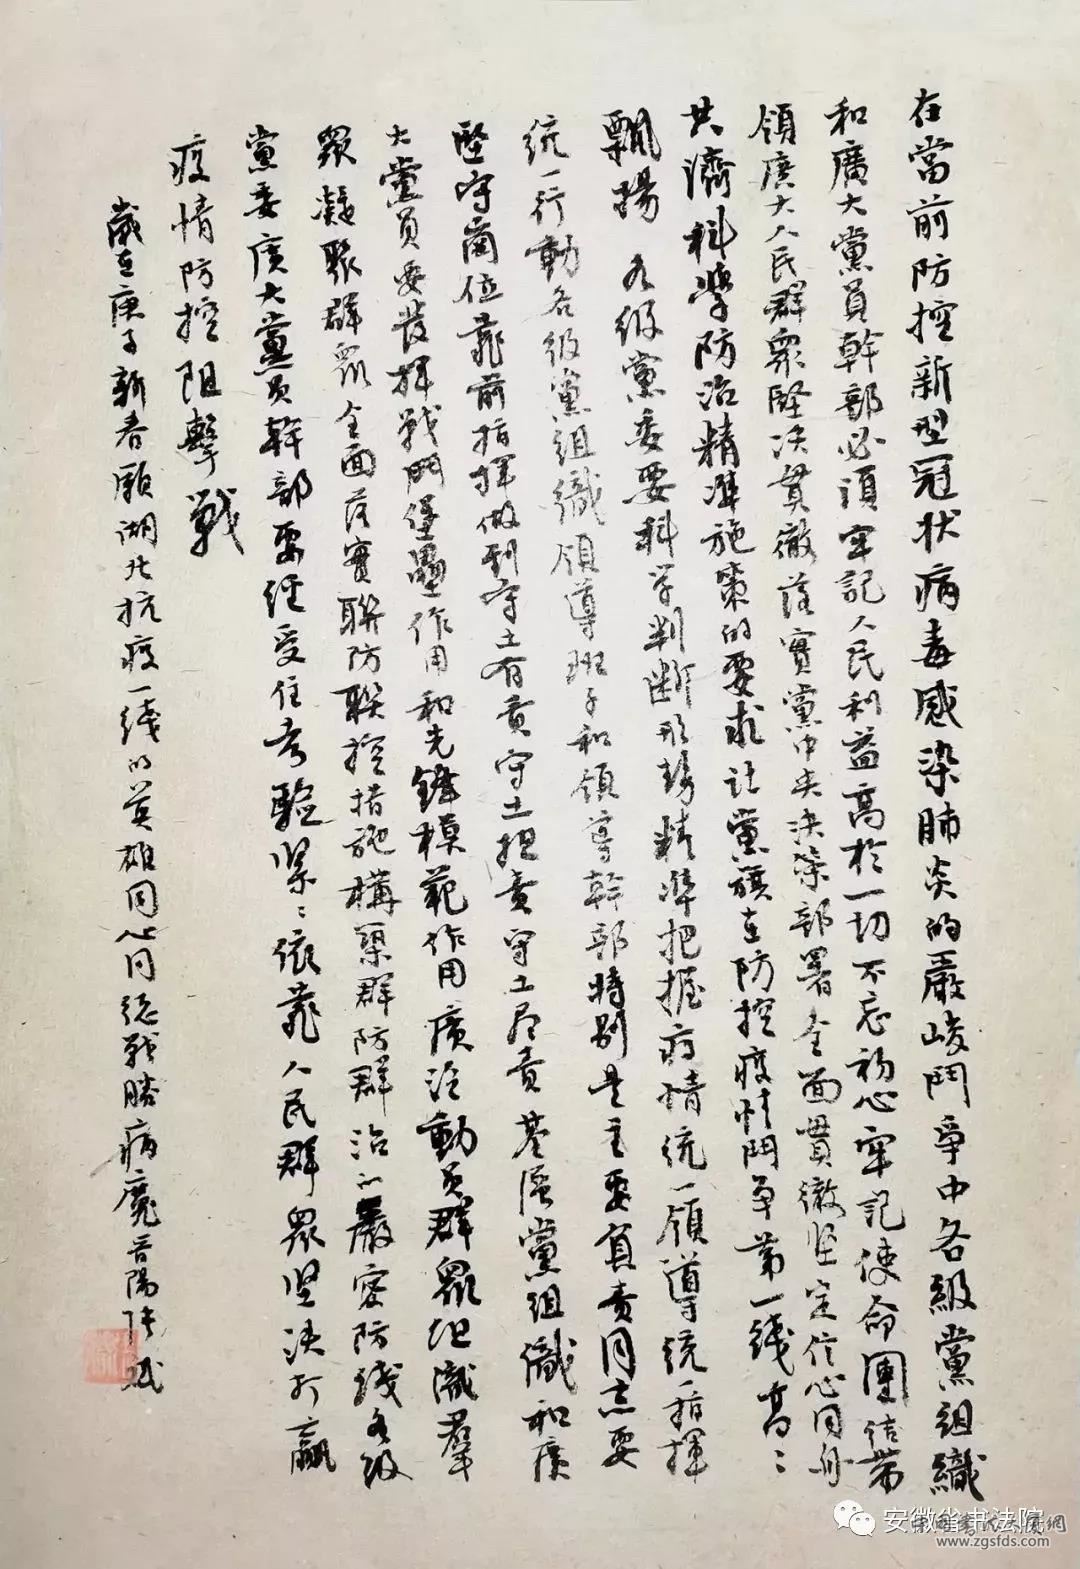 在當前防控新型冠状病毒感染肺炎的嚴峻鬥爭中各級黨組織
和廣大黨員幹部必須牢記人民利益高於一切不忘初心牢記使命團结带
領廣大人民群衆堅决貫徹落實黨中央决策部署全面貫徹坚定信心同舟
共濟科學防治精準施策的要求让黨旗在防控疫情鬥争第一线高〻
飄揚各级黨委要科学判断形势精準把握疫情統一領導統一指揮
统一行動各级黨組織領導班子和領導幹部特别是主要負责同志要
堅守崗位靠前指揮做到守土有责守土担责守土尽责基层黨組織和廣
大黨員要發揮戰鬥堡壘作用和先鋒模範作用廣泛動员群衆组織羣
眾凝聚群眾全面落實聯防聯控措施構築群防群治的嚴密防线各级
黨委廣大黨员幹部要经受住考驗紧〻依靠人民群眾坚决打赢
疫情防控阻擊戰
歲在庚子新春願湖北抗疫一线的英雄同心同德战勝病魔
安徽省书法院
www.zgsfds.com